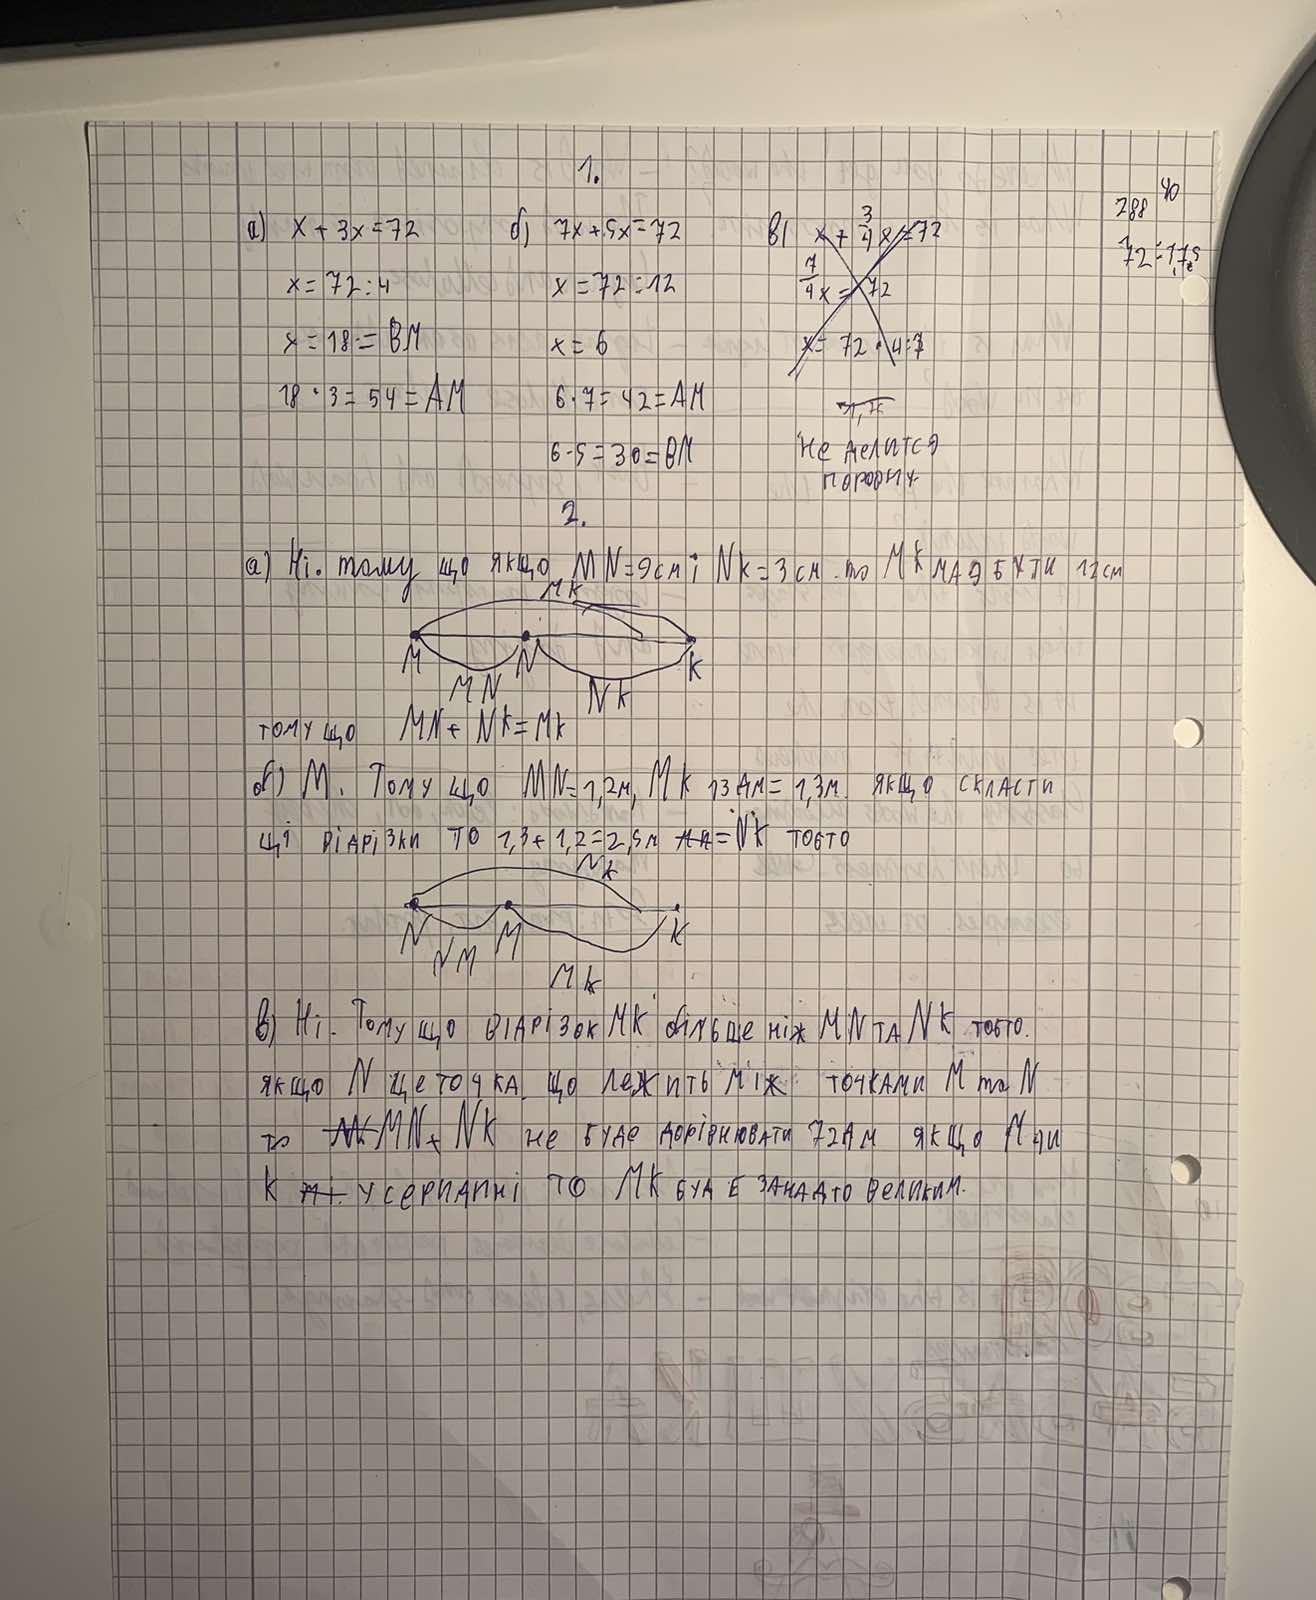 1.
288 40
72:1,75
а) x + 3x = 72
x = 72 : 4
x = 18 = BM
18 · 3 = 54 = AM
б) 7x + 5x = 72
x = 72 : 12
x = 6
6 · 7 = 42 = AM
6 · 5 = 30 = BM
в) x + 3/4 x = 72
7/4 x = 72
x = 72 · 4 : 7
Не делится
2.
а) Ні. тому що якщо MN = 9 см і NK = 3 см. то MK має бути 12 см
MK
M N K
MN NK
тому що MN + NK = MK
б) M. Тому що MN = 1,2м, MK 13 дм = 1,3м. якщо скласти
ці відрізки то 1,3 + 1,2 = 2,5м = NK тобто
NK
N M K
NM
MK
в) Ні. Тому що відрізок MK більше ніж MN та NK тобто.
якщо N це точка що лежить між точками M та N
то MN + NK не буде дорівнювати 72дм якщо M чи
K у середині то MK буде занадто великим.